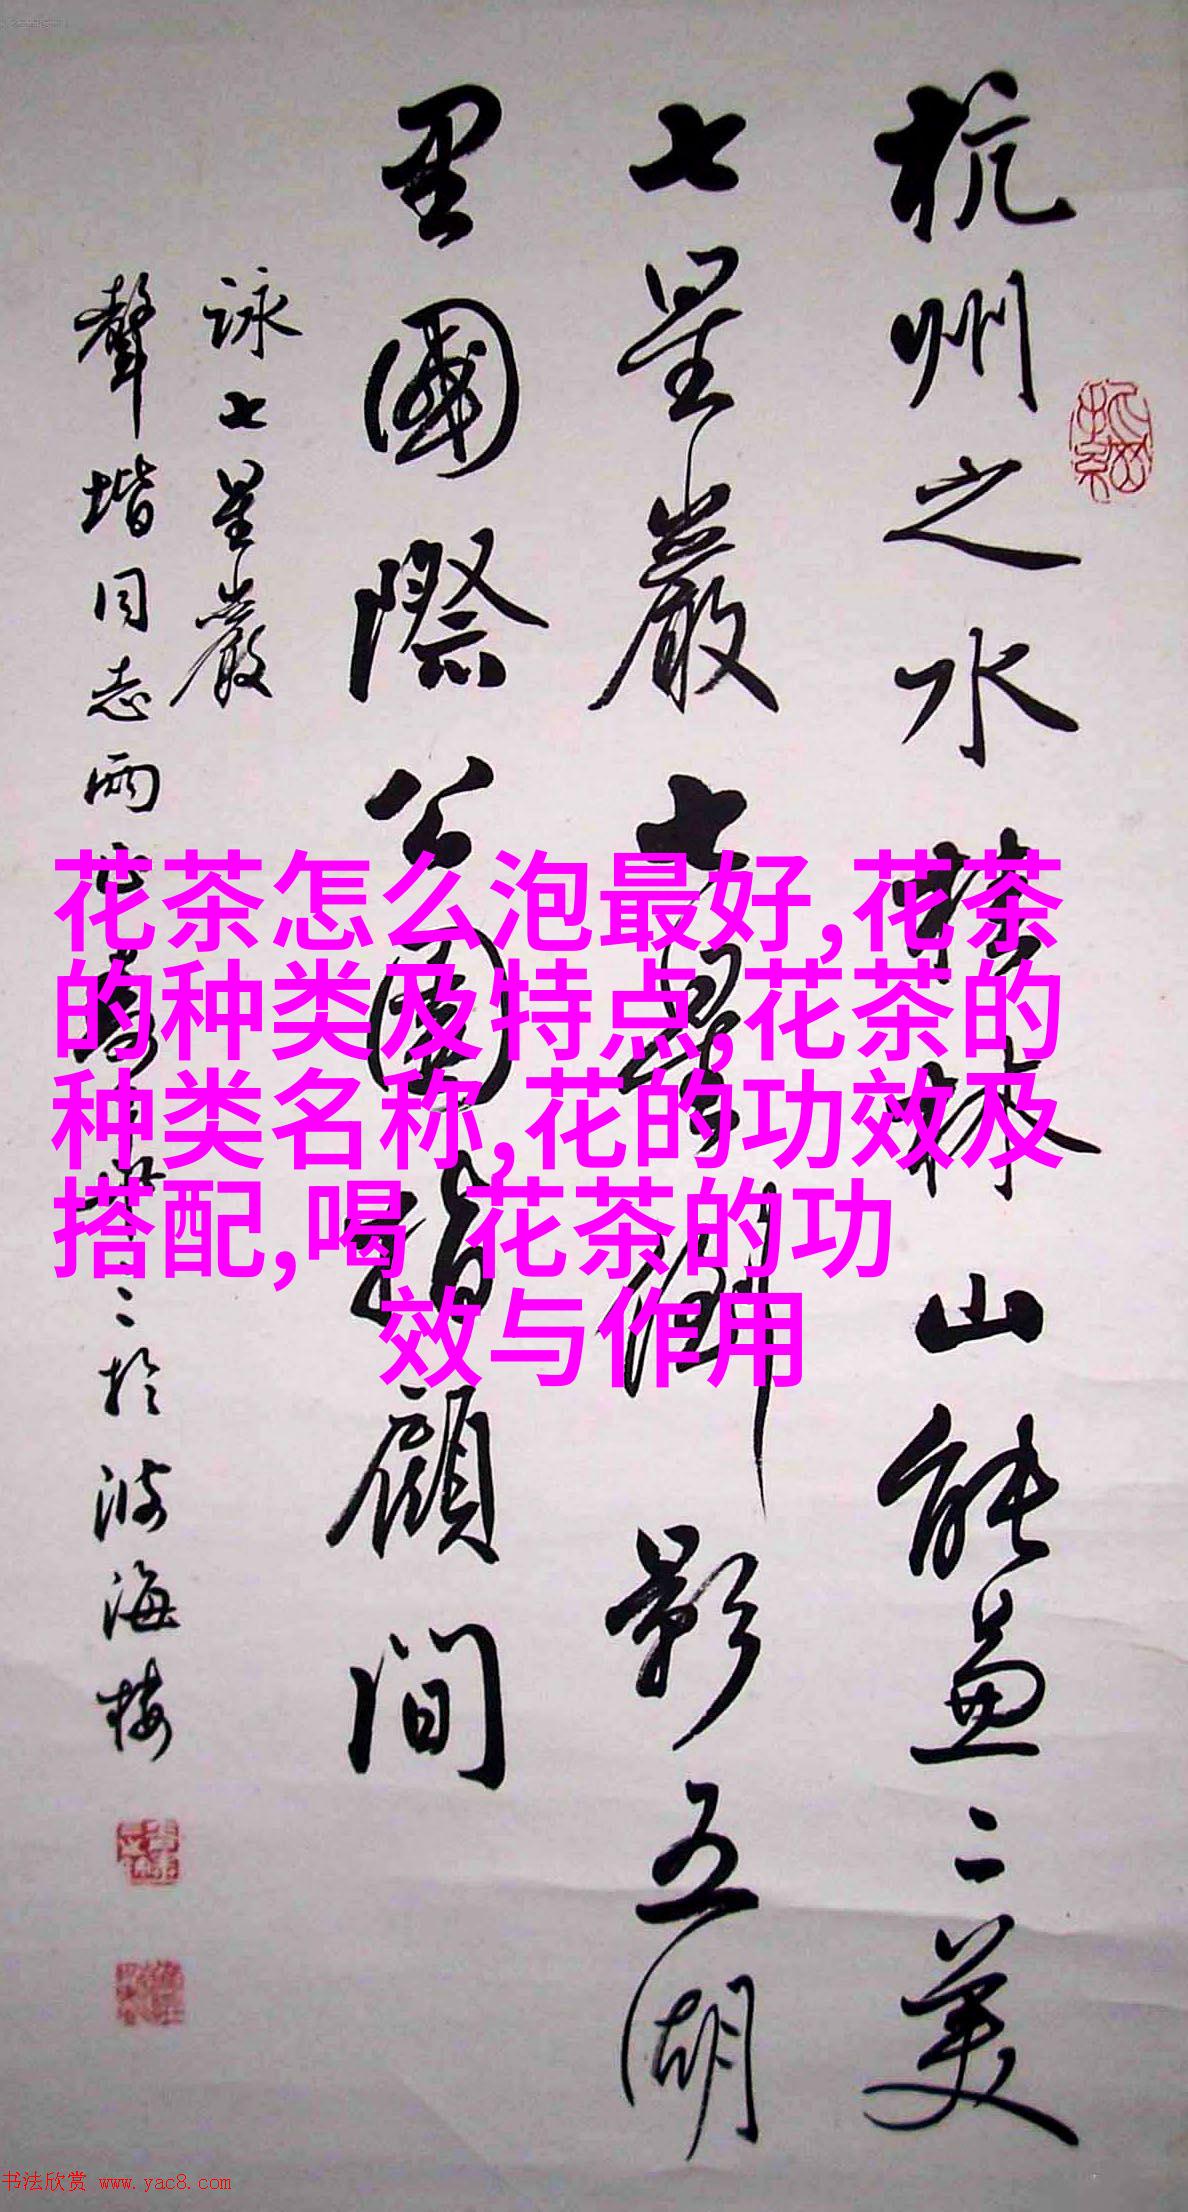 杭州之水桂林山能兼二美
七星巖七星湖影五湖
里國際公園指顧間
詠七星巖
聲堦同志雨正
於波海樓
花茶怎么泡最好,花茶
的种类及特点,花茶的
种类名称,花的功效及
搭配,喝 花茶的功
效与作用
书法欣赏 www.yac8.com